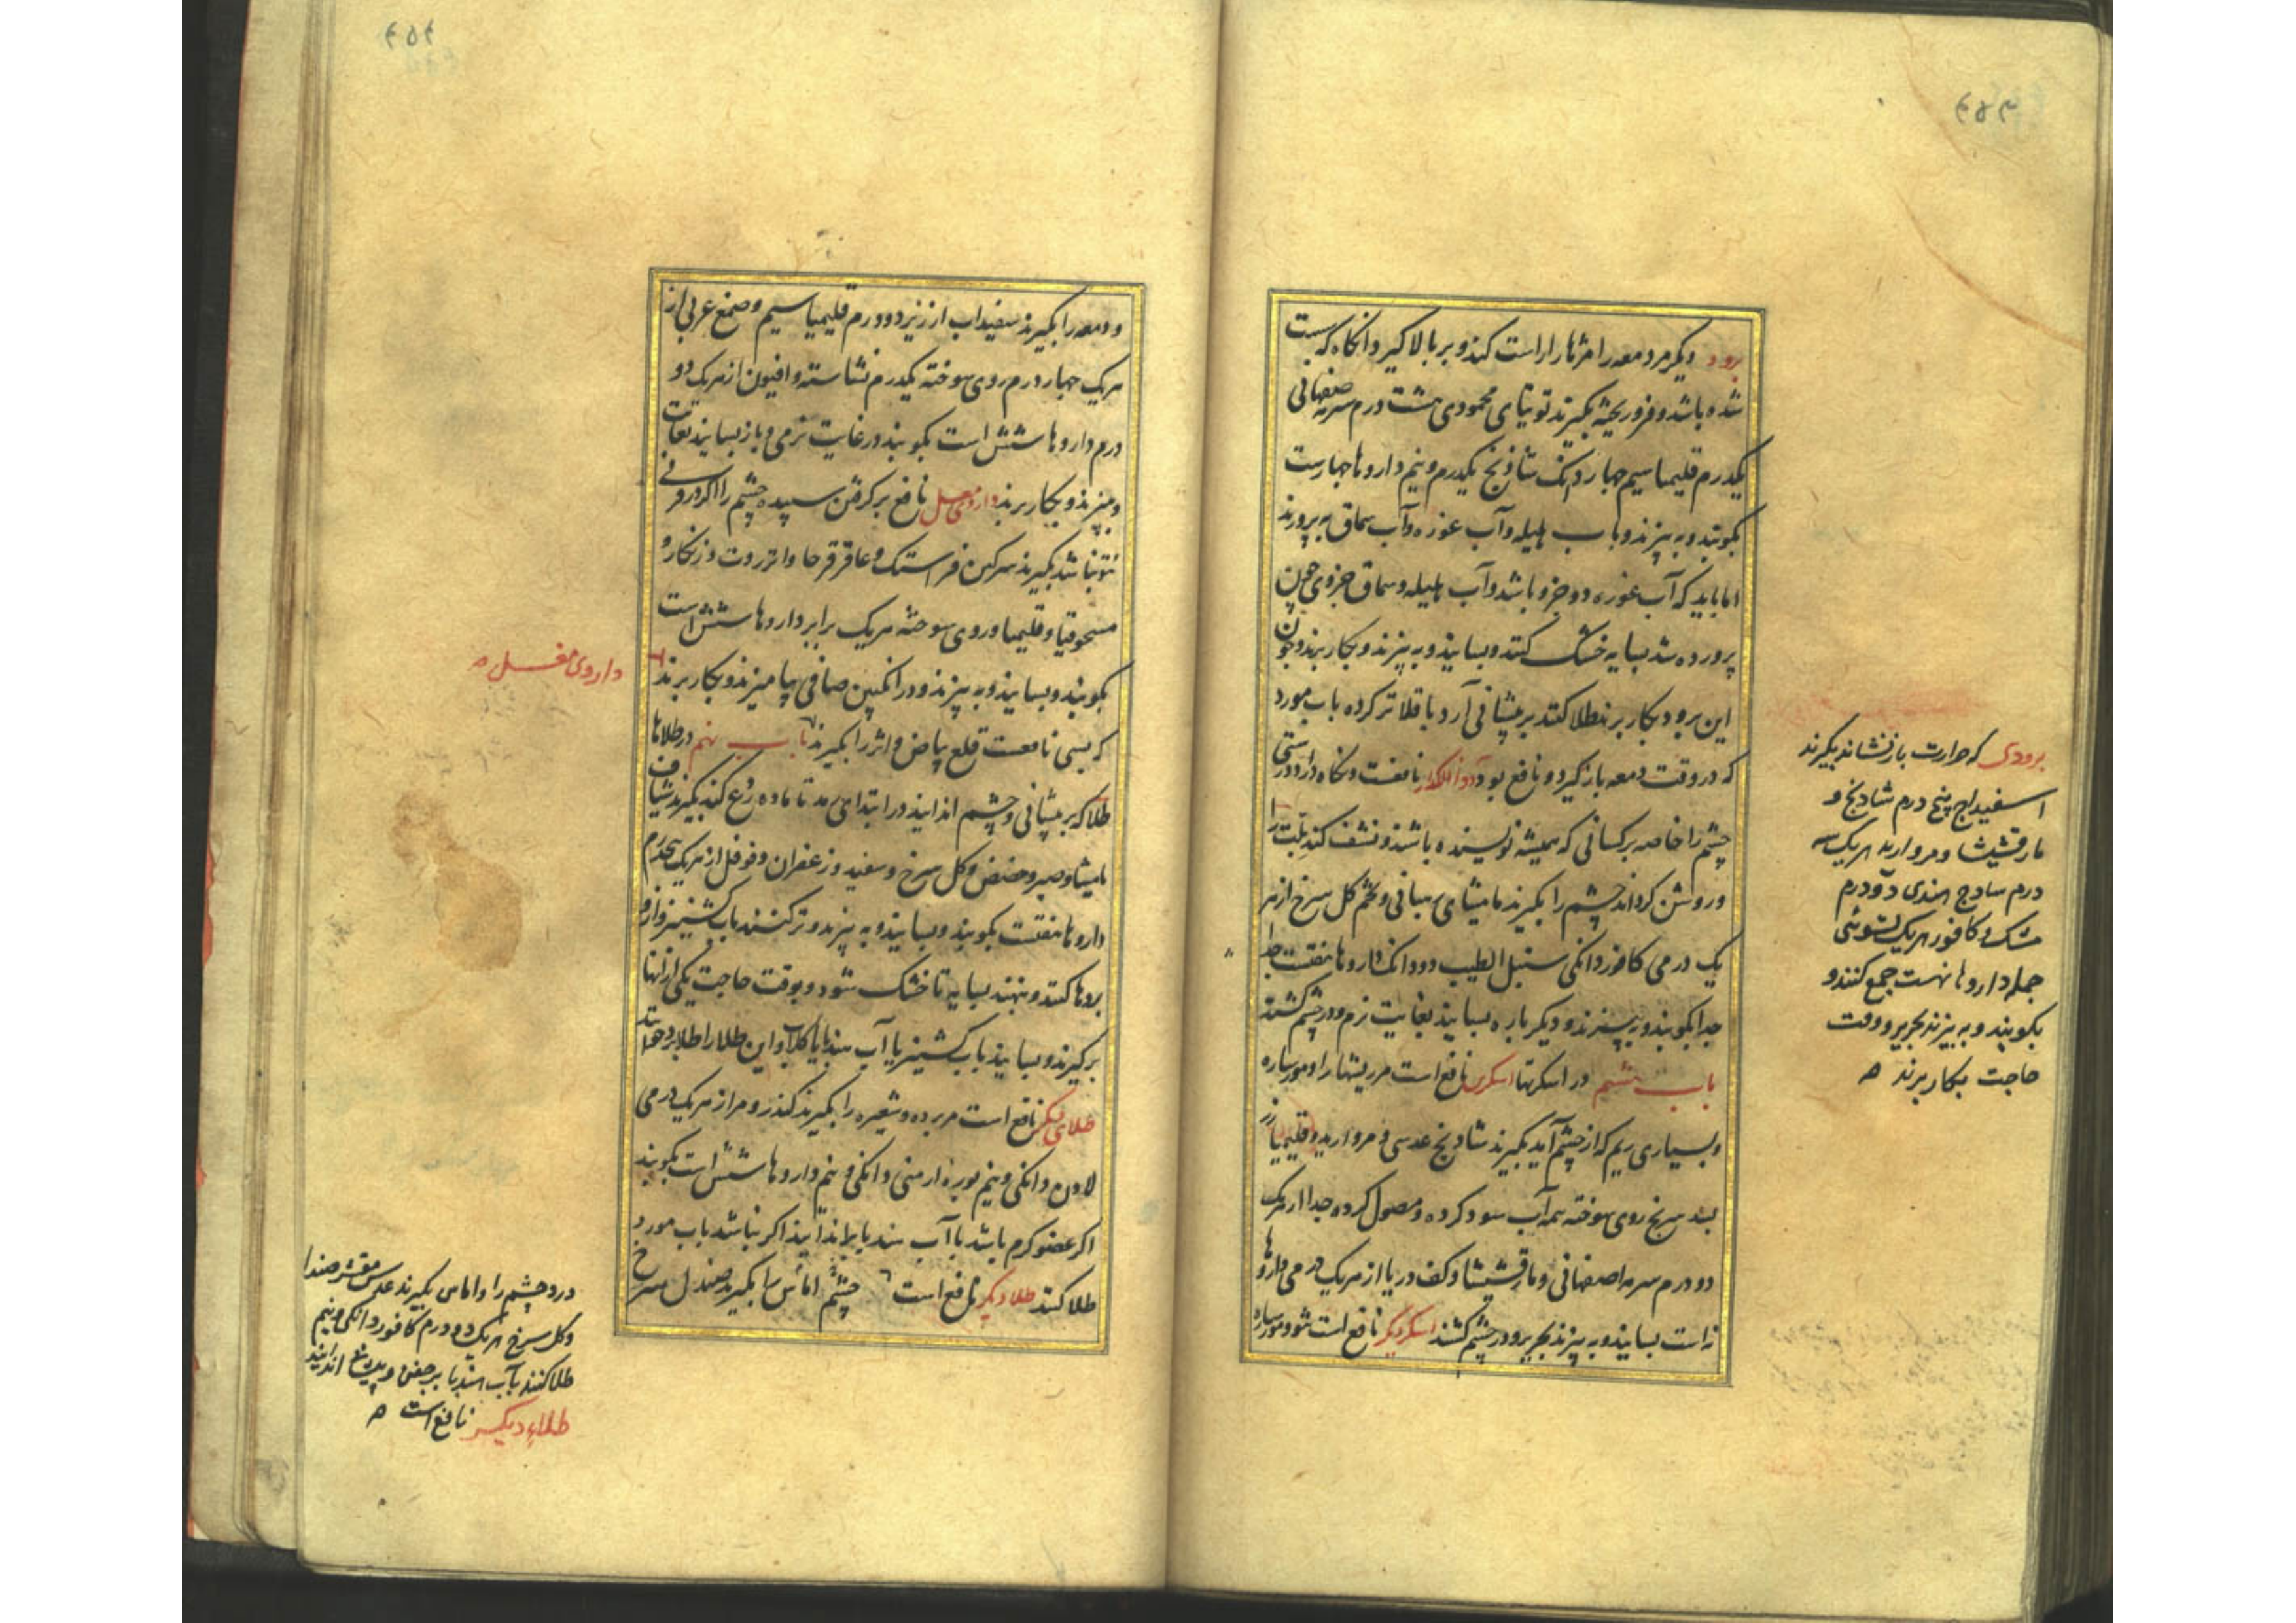 برود دیگر مر دمعه را مژها را راست کند و بر بالا گیرد انکاه که سست
شده باشد و فرو ریخته بگیرند توتیای محمودی هشت درم سرمه صفهانی
یکدرم قلیمیا سیم چهار دانک شادنج یکدرم و نیم داروها چهارست
بکوبند و به پیزند و باب هلیله و آب غوره و آب سماق به پرورند
اما باید که آب غوره دو جزو باشد و آب هلیله و سماق جزوی چون
پرورده شد بسایه خشک کنند و بسایند و به پیزند و بکار برند و چون
این برود بکار برند طلا کنند بر پیشانی آرد باقلا تر کرده باب مورد
که در وقت دمعه باز گیرد و نافع بود نافعست و نکاه دارد درستی
چشم را خاصه بر کسانی که همیشه نویسنده باشند و نشف کند بلت را
و روشن کرداند چشم را بگیرند مامیثای میانی و تخم کل سرخ از هر
یک درمی کافور دانکی سنبل الطیب دو دانک داروها هفتست جدا
جدا بکوبند و به پیزند و دیگر باره بسایند بغایت نرم و در چشم کشند
باب هشتم در اسکرتها اسکری نافع است مر ریشها را و مورساره
و بسیاری ریم که از چشم آید بگیرند شادنج عدسی و مروارید و قلیمیا زر
بسد سرنج روی سوخته همه آب سود کرده و مصول کرده جدا از هریک
دو درم سرمه اصفهانی و مارقشیشا و کف دریا از هریک درمی داروها
نه است بسایند و به پیزند بحریر و در چشم کشند اسکر دیگر نافع است و مورساره
برودی که حرارت باز نشاند بگیرند
اسفیداج پنج درم شادنج و
مارقشیشا و مروارید هریک سه
درم سادج هندی دو درم
مشک و کافور هریک تسوئی
جمله داروها نهست جمع کنند و
بکوبند و به بیزند بحریر و وقت
حاجت بکار برند
و دمعه را بگیرند سفیداب ارزیز دو درم قلیمیا سیم و صمغ عربی از
هریک چهار درم روی سوخته یکدرم نشاسته و افیون از هریک دو
درم داروها شش است بکوبند در غایت نرمی و باز بسایند بغایت
و بپزند و بکار برند داروی نافع بر کرفتن سپیده چشم را اگر درو
نباشد بگیرند سرکین فراستک و عاقرقرحا و انزروت و زنکار و
مسحوقنیا و قلیمیا و روی سوخته هریک برابر داروها شش است
بکوبند و بسایند و به پیزند و در انکبین صافی بیامیزند و بکار برند
که بسی نافعست قلع بیاض و اثر را بگیرند باب نهم در طلاها
طلا که بر پیشانی و چشم اندایند در ابتدای رمد تا ماده کند بگیرند شیاف
مامیثا و صبر و حضض و کل سرخ و سفید و زعفران و فوفل از هریک یکدرم
داروها هفتست بکوبند و بسایند و به پیزند و تر کنند باب کشنیز و از و
بروها کنند و بنهند بسایه تا خشک شود و بوقت حاجت یکی از انها
بر کیرند و بسایند باب کشنیز یا آب هندبا یا کلاب و این طلا را طلا برد خوانند
طلای دیگر نافع است مر برده و شعیره را بگیرند کندر و مر از هریک درمی
لادن دانکی و نیم بوره ارمنی دانکی و نیم داروها شش است بکوبند
اگر عضو کرم باشد با آب هندبا اگر نباشد باب مورد
طلا کنند طلا دیگر نافع است چشم اماس را بگیرند صندل سرخ
داروی
درد چشم را و اماس بگیرند عدس مقشر صندل
و کل سرخ هریک دو درم کافور دانکی و نیم
طلا کنند بآب هندبا بر جفن و پیشانی اندایند
طلاء دیگر نافع است